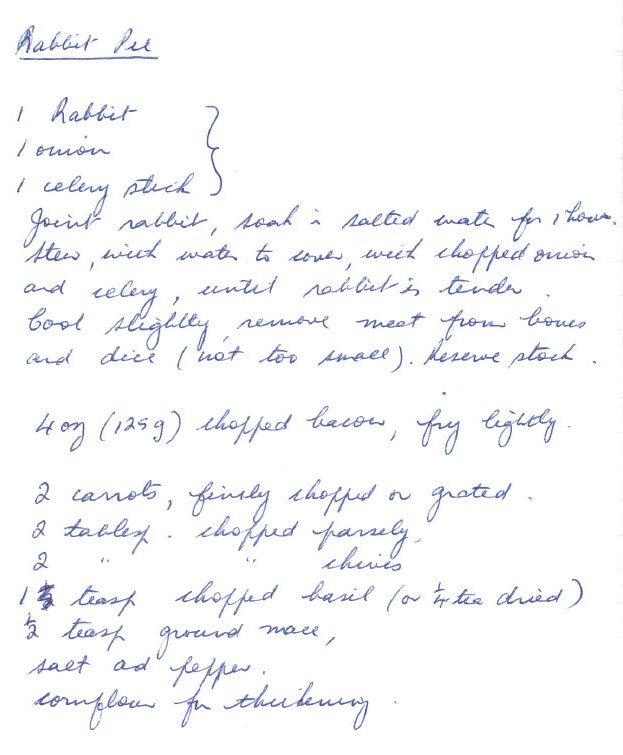 Rabbit Pie
1 Rabbit
1 onion
1 celery stick
Joint rabbit, soak in salted water for 1 hour.
Stew, with water to cover, with chopped onion
and celery, until rabbit is tender.
Cool slightly, remove meat from bones
and dice (not too small). Reserve stock.
4 oz (125g) chopped bacon, fry lightly.
2 carrots, finely chopped or grated.
2 tablesp. chopped parsely,
2 " " chives
1 teasp chopped basil (or ¼ tea dried)
½ teasp ground mace,
salt ad pepper.
cornflour for thickening.